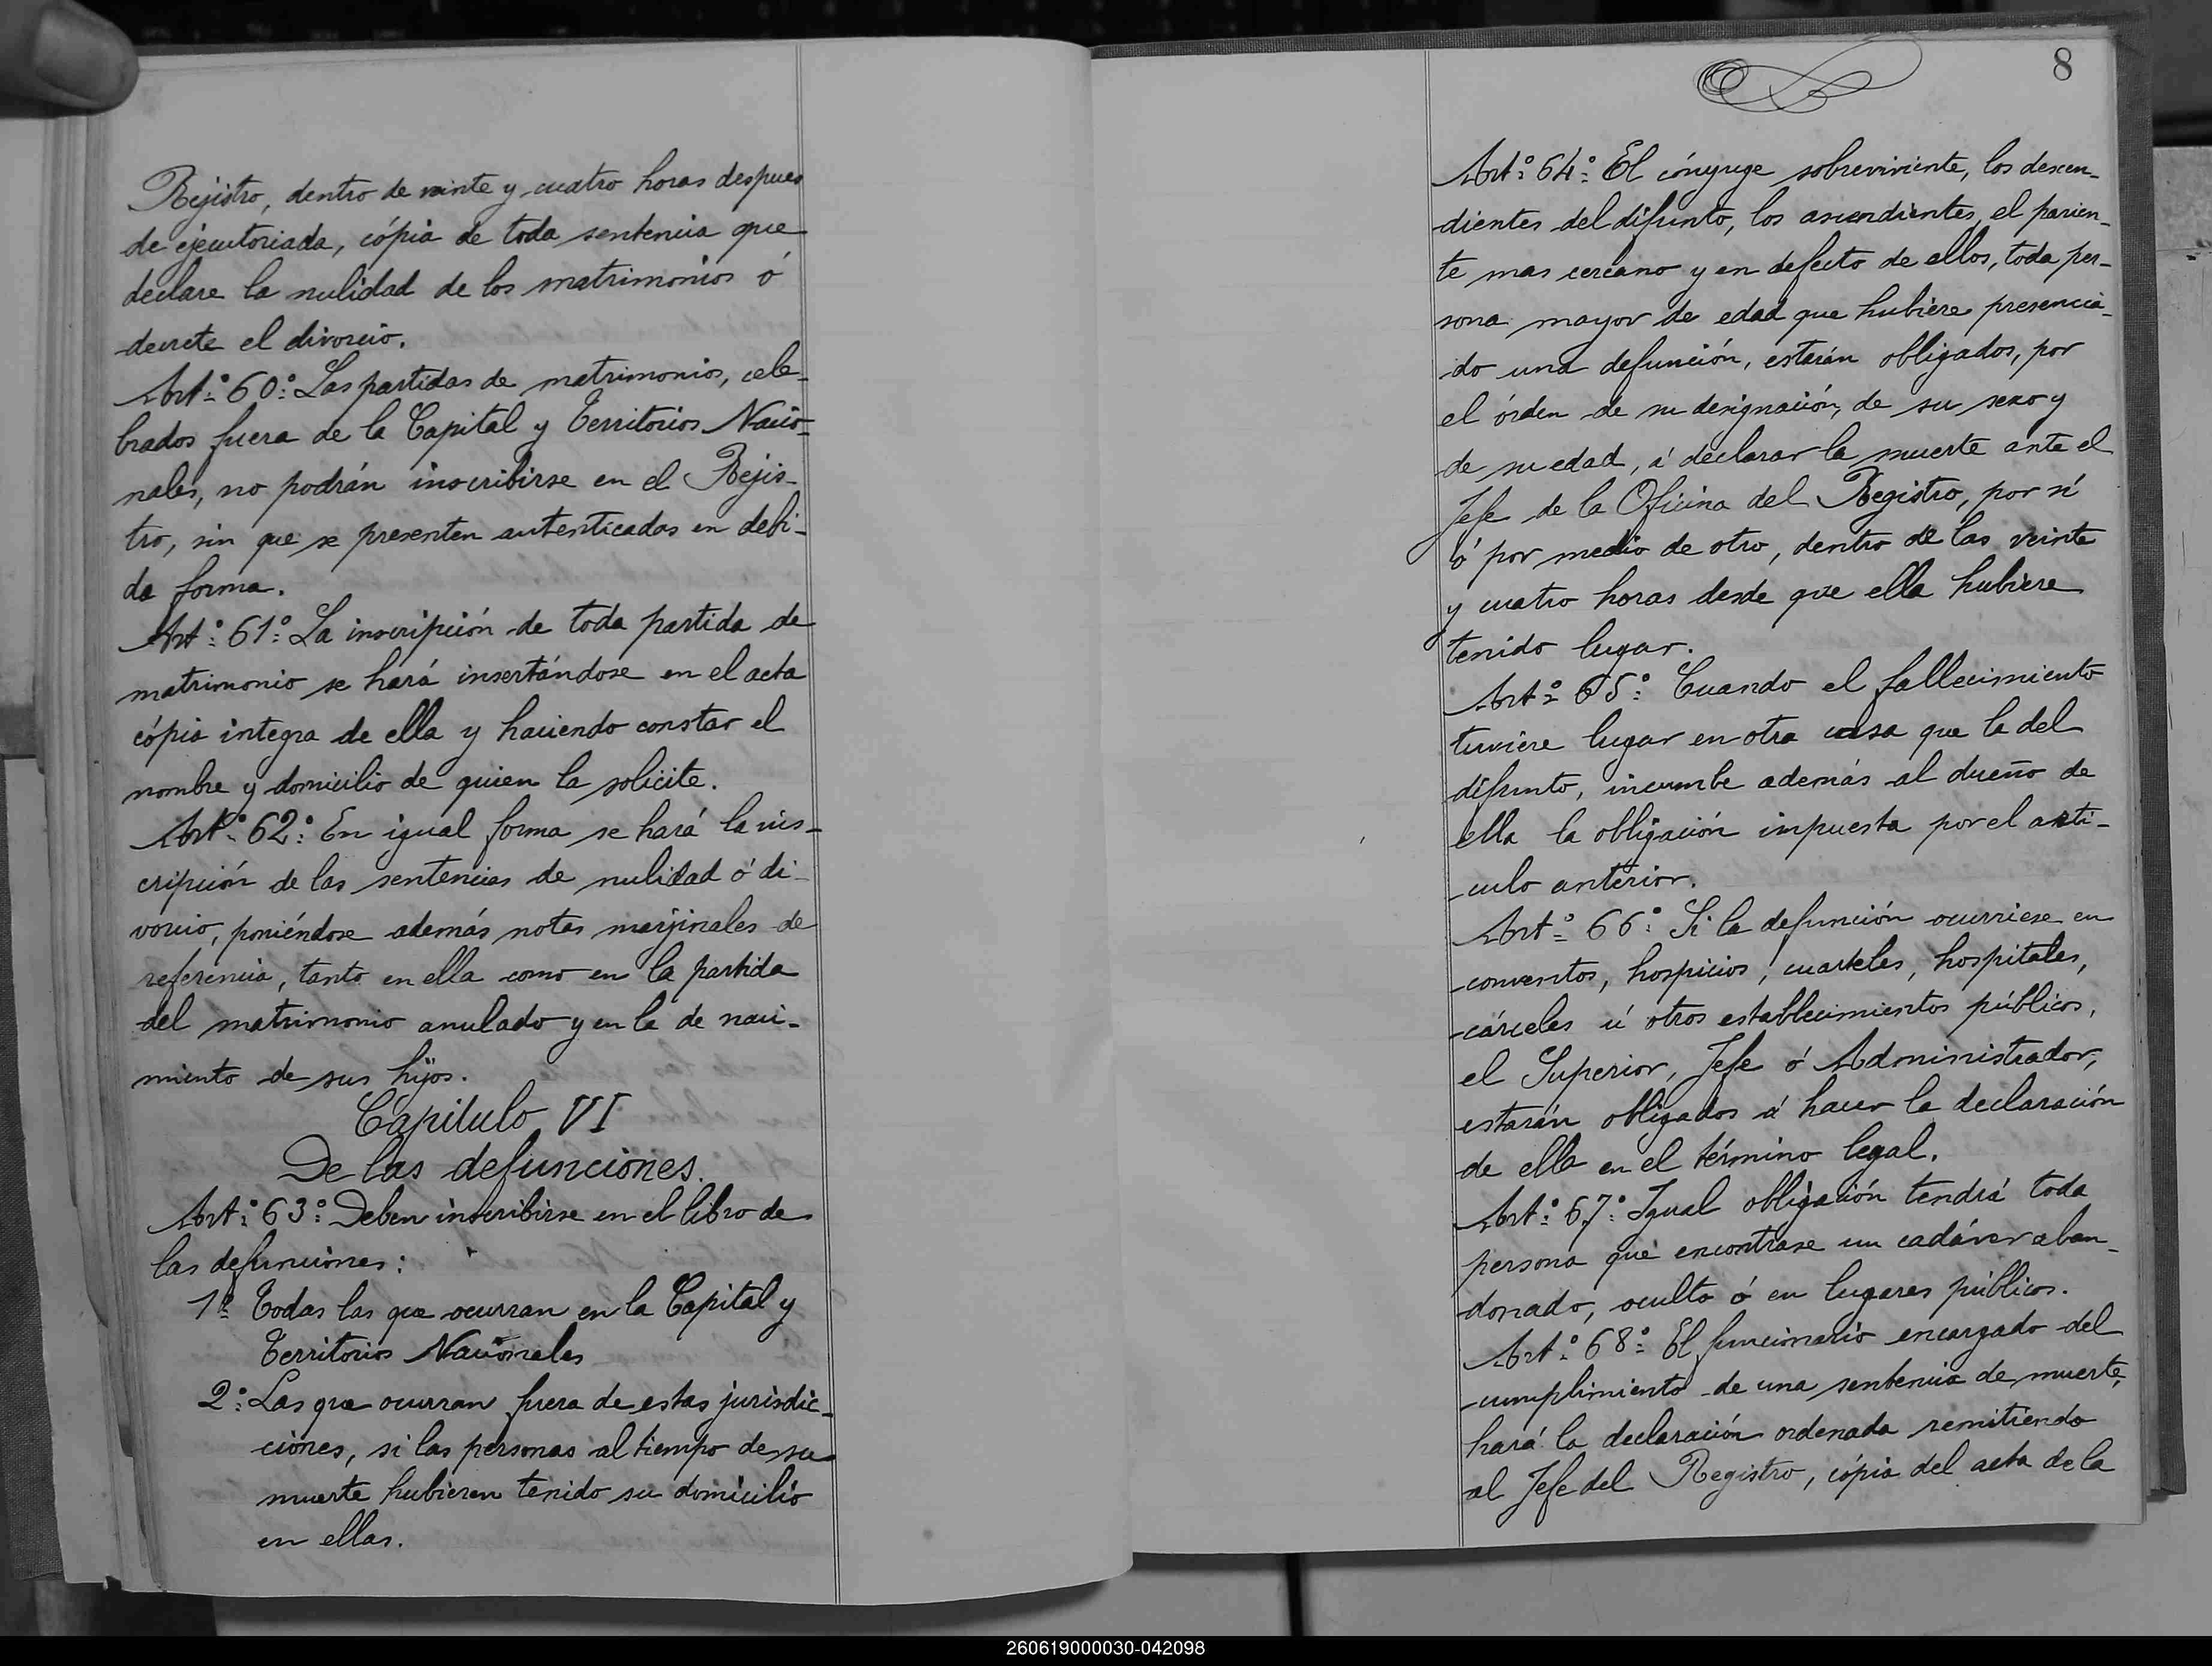 Rejistro, dentro de veinte y cuatro horas despues
de ejecutoriada, cópia de toda sentencia que
declare la nulidad de los matrimonios ó
decrete el divorcio.
Art.º 60.º Las partidas de matrimonios, cele-
brados fuera de la Capital y Territorios Nacio-
nales, no podrán inscribirse en el Rejis-
tro, sin que se presenten autenticadas en debi-
da forma.
Art.º 61.º La inscripción de toda partida de
matrimonio se hará insertándose en el acta
cópia integra de ella y haciendo constar el
nombre y domicilio de quien la solicite.
Art.º 62.º En igual forma se hará la ins-
cripción de las sentencias de nulidad ó di-
vorcio, poniéndose además notas marjinales de
referencia, tanto en ella como en la partida
del matrimonio anulado y en la de naci-
miento de sus hijos.
Capitulo VI
De las defunciones.
Art.º 63.º Deben inscribirse en el libro de
las defunciones:
1º Todas las que ocurran en la Capital y
Territorios Nacionales
2.º Las que ocurran fuera de estas jurisdic-
ciones, si las personas al tiempo de su
muerte hubieren tenido su domicilio
en ellas.
8
Art.º 64.º El cónyuge sobreviviente, los descen-
dientes del difunto, los ascendientes, el parien-
te mas cercano y en defecto de ellos, toda per-
sona mayor de edad que hubiere presencia-
do una defunción, estarán obligados, por
el órden de su designación, de su sexo y
de su edad, á declarar la muerte ante el
Jefe de la Oficina del Registro, por sí
ó por medio de otro, dentro de las veinte
y cuatro horas desde que ella hubiere
tenido lugar.
Art.º 65.º Cuando el fallecimiento
tuviere lugar en otra casa que la del
difunto, incumbe además al dueño de
ella la obligación impuesta por el arti-
culo anterior.
Art.º 66.º Si la defunción ocurriese en
conventos, hospicios, cuarteles, hospitales,
cárceles ú otros establecimientos públicos,
el Superior, Jefe ó Administrador,
estarán obligados á hacer la declaración
de ella en el término legal.
Art.º 67.º Igual obligación tendrá toda
persona que encontrase un cadáver aban-
donado, oculto ó en lugares públicos.
Art.º 68.º El funcionario encargado del
cumplimiento de una sentencia de muerte,
hará la declaración ordenada remitiendo
al Jefe del Registro, cópia del acta de la
260619000030-042098